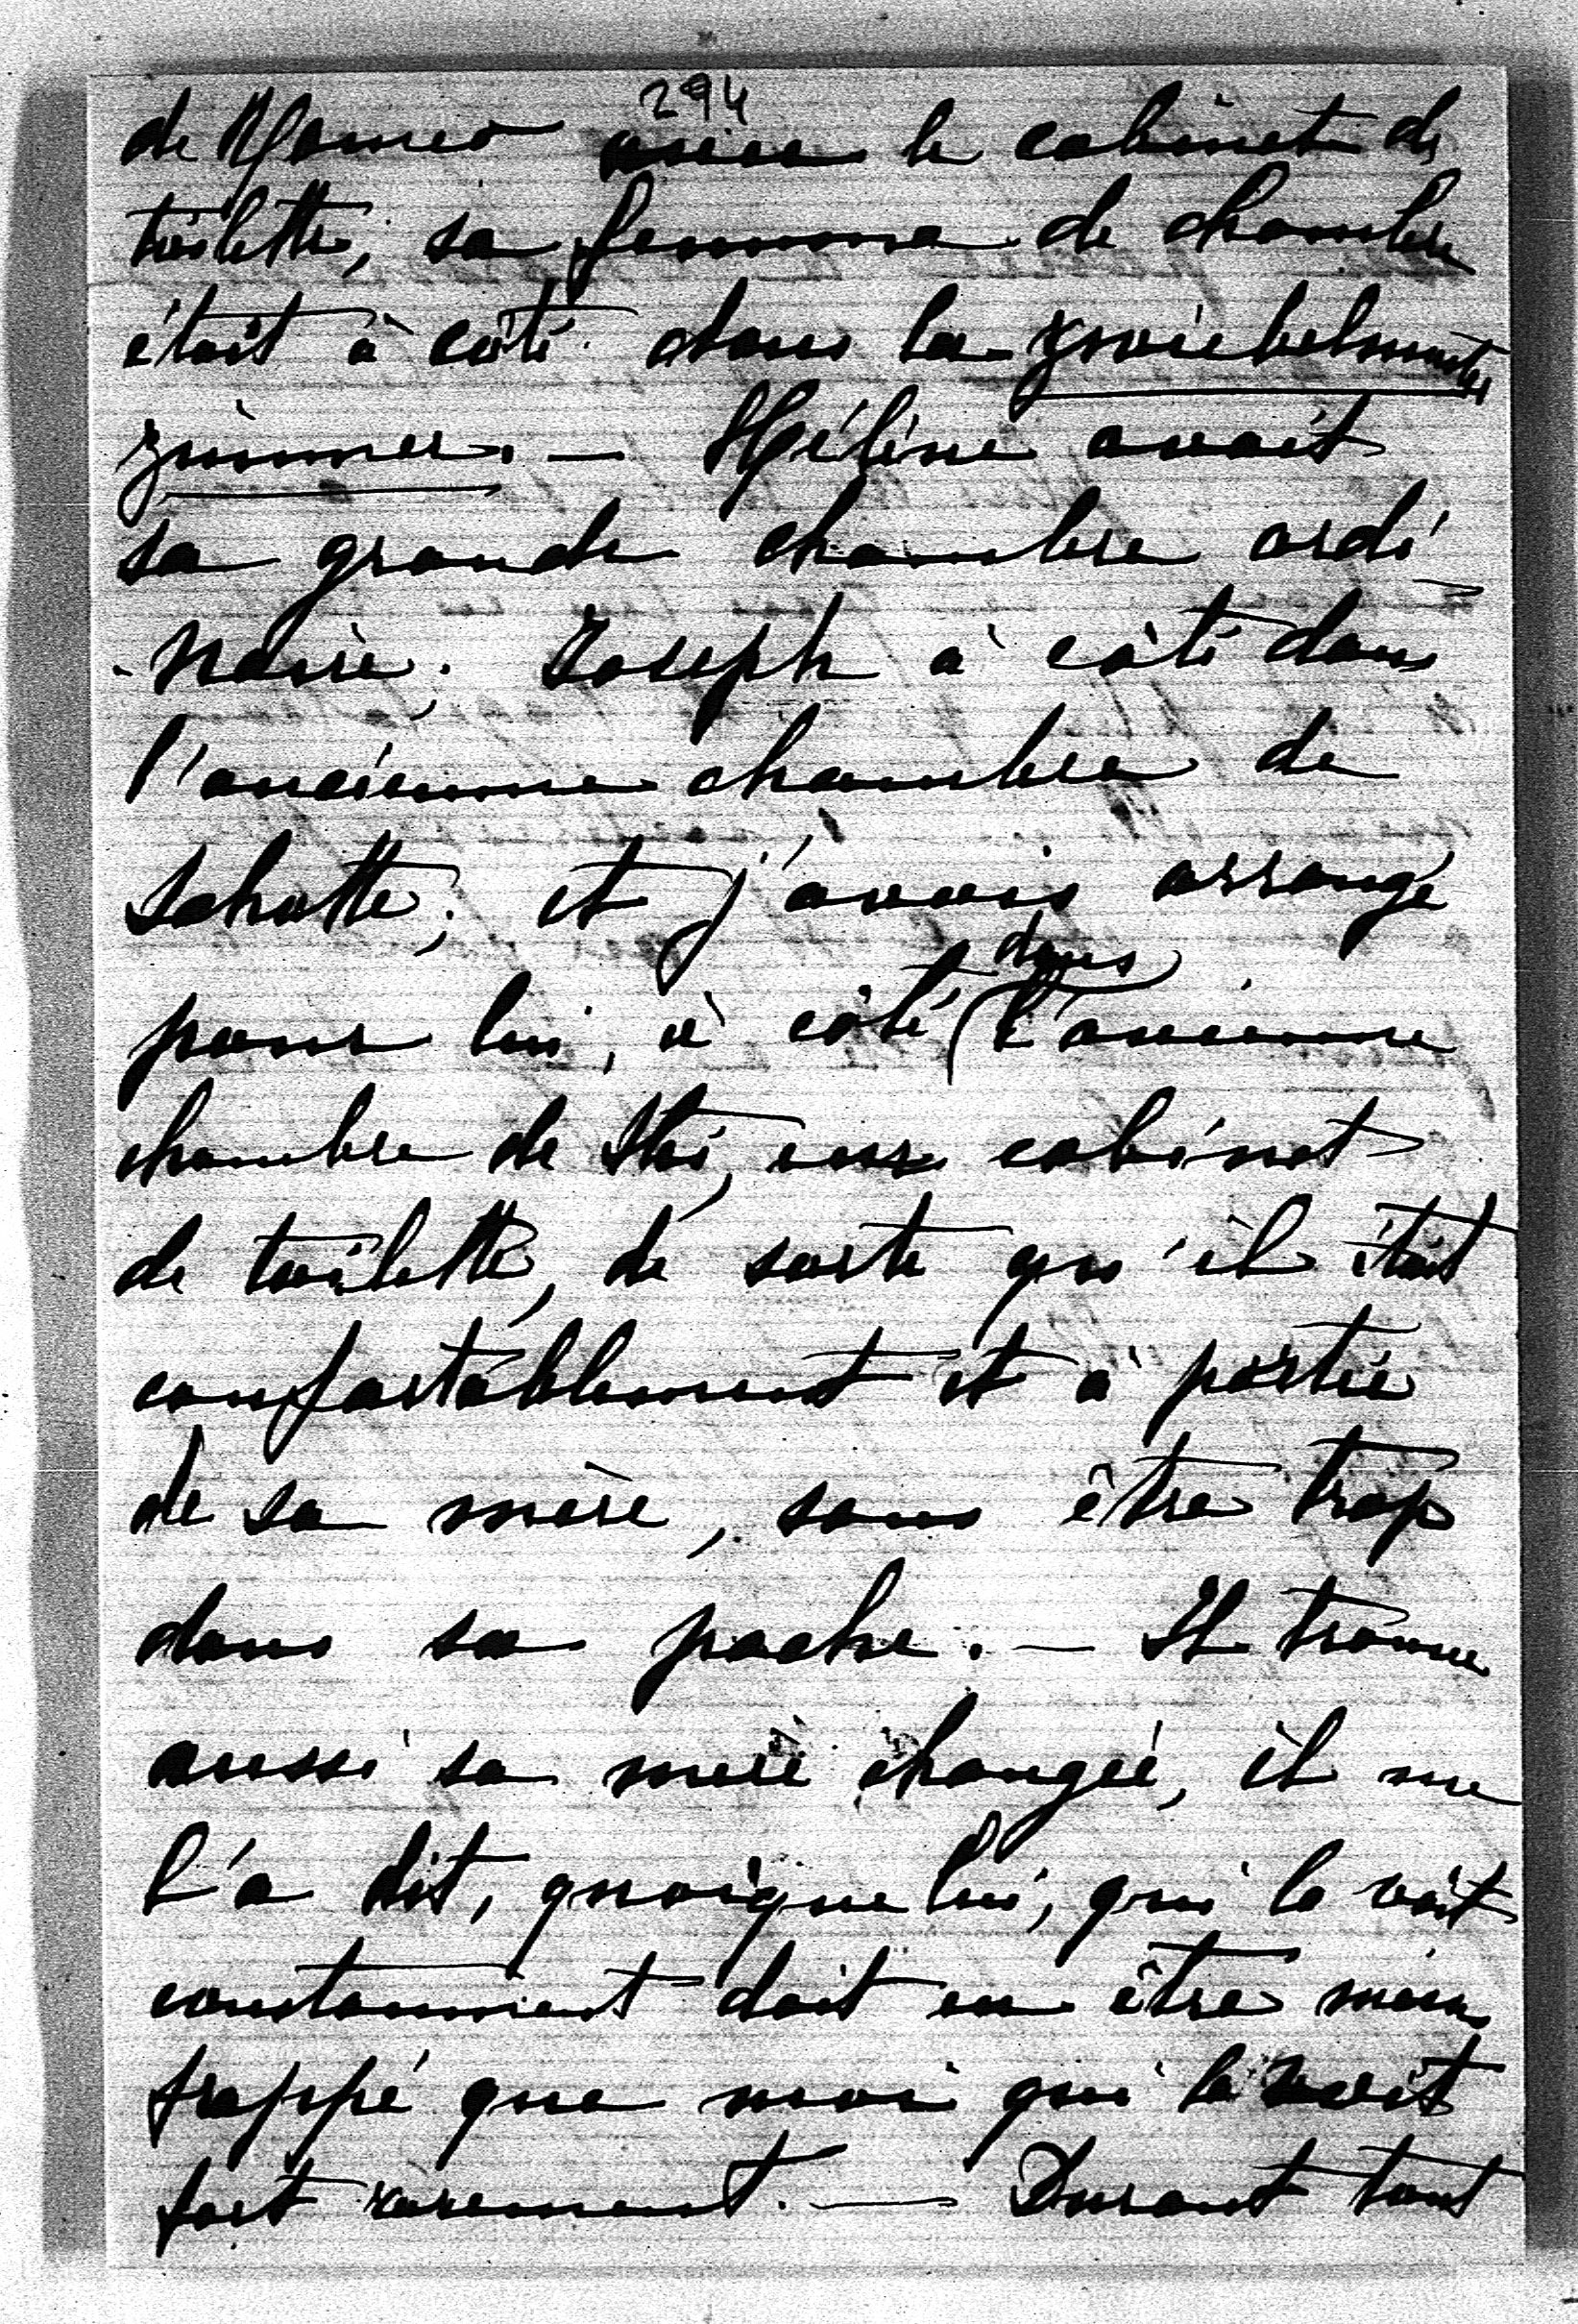 294
de Roméo avec le cabinet de
toilette, sa femme de chambre
était à côté dans la zwiebelmuster
zimmer. — Hélène avait
sa grande chambre ordi-
-naire; Joseph à côté dans
l'ancienne chambre de
Schotte; et j'avais arrangé
pour lui, à côté dans l'ancienne
chambre de Stoi, un cabinet
de toilette, de sorte qu'il était
confortablement et à portée
de sa mère, sans être trop
dans sa poche. — Il trouve
aussi sa mère changée, il me
l'a dit, quoique lui, qui la voit
constamment doit en être moins
frappé que moi qui la voit
fort rarement. — Durant tout